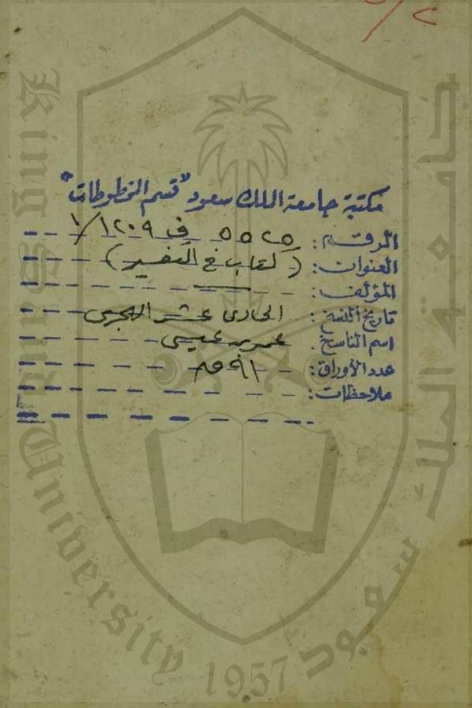 مكتبة جامعة الملك سعود "قسم المخطوطات"
الرقم: ٥٥٢٥ ف ١٢٠٩/١
العنوان: (كتاب في التفسير)
المؤلف:
تاريخ النسخ: الحادي عشر الهجري
اسم الناسخ: عمر بن عيسى
عدد الأوراق:
ملاحظات:
King Saud University
جامعة الملك سعود
1957